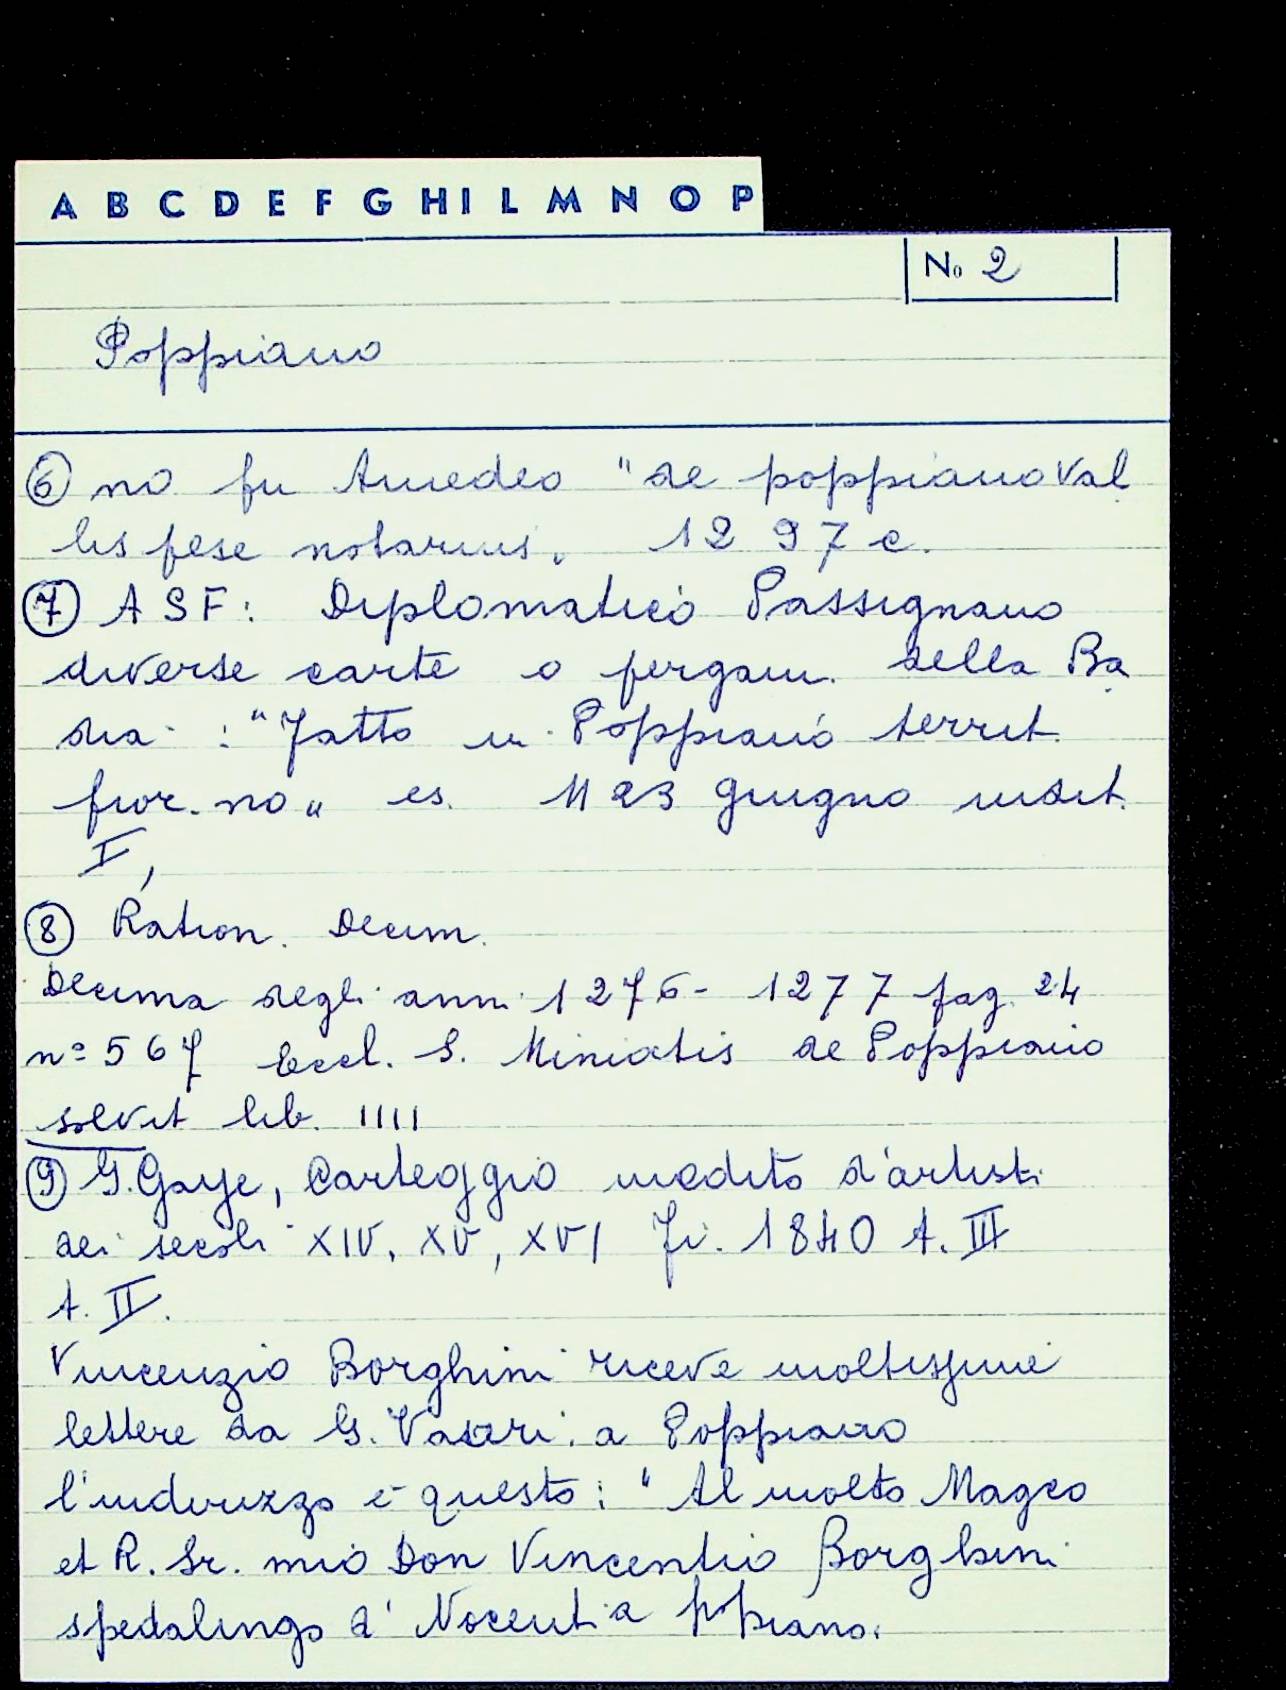 A B C D E F G H I L M N O P
No 2
Poppiano
⑥ no fu Amedeo "de poppiano Val
lis pese notarius. 1297 c.
⑦ ASF: Diplomatico Passignano
diverse carte o pergam. della Ba
dia: "Fatto in Poppiano territ.
fior.no" es. 1123 giugno indit.
I,
⑧ Ration. Decim.
Decima degli anni 1276-1277 pag. 24
nº 567 Eccl. S. Miniatis de Poppiano
solvit lib. IIII
⑨ G. Gaye, Carteggio inedito d'artisti
dei secoli XIV, XV, XVI Fi. 1840 t. III
t. II.
Vincenzio Borghini riceve moltissime
lettere da G. Vasari. a Poppiano
l'indirizzo è questo: "Al molto Magco
et R. Sr. mio Don Vincentio Borghini
spedalingo d' Nocenti a popiano.